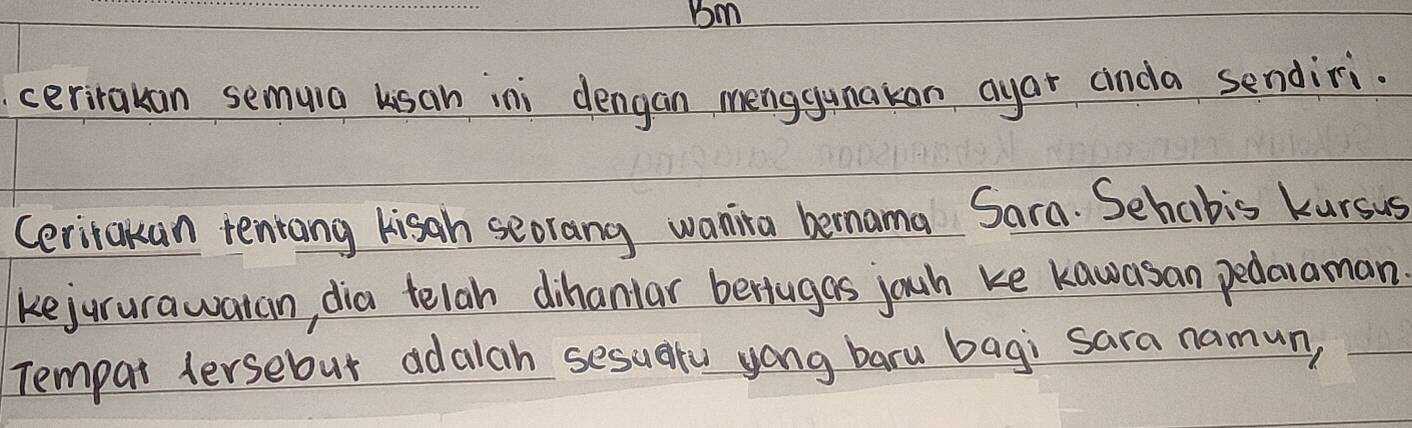 Bm
ceritakan semula kisah ini dengan menggunakan ayat anda sendiri.
Ceritakan tentang kisah seorang wanita bernama Sara. Sehabis kursus
kejururawatan, dia telah dihantar bertugas jauh ke kawasan pedalaman.
Tempat tersebut adalah sesuatu yang baru bagi sara namun,